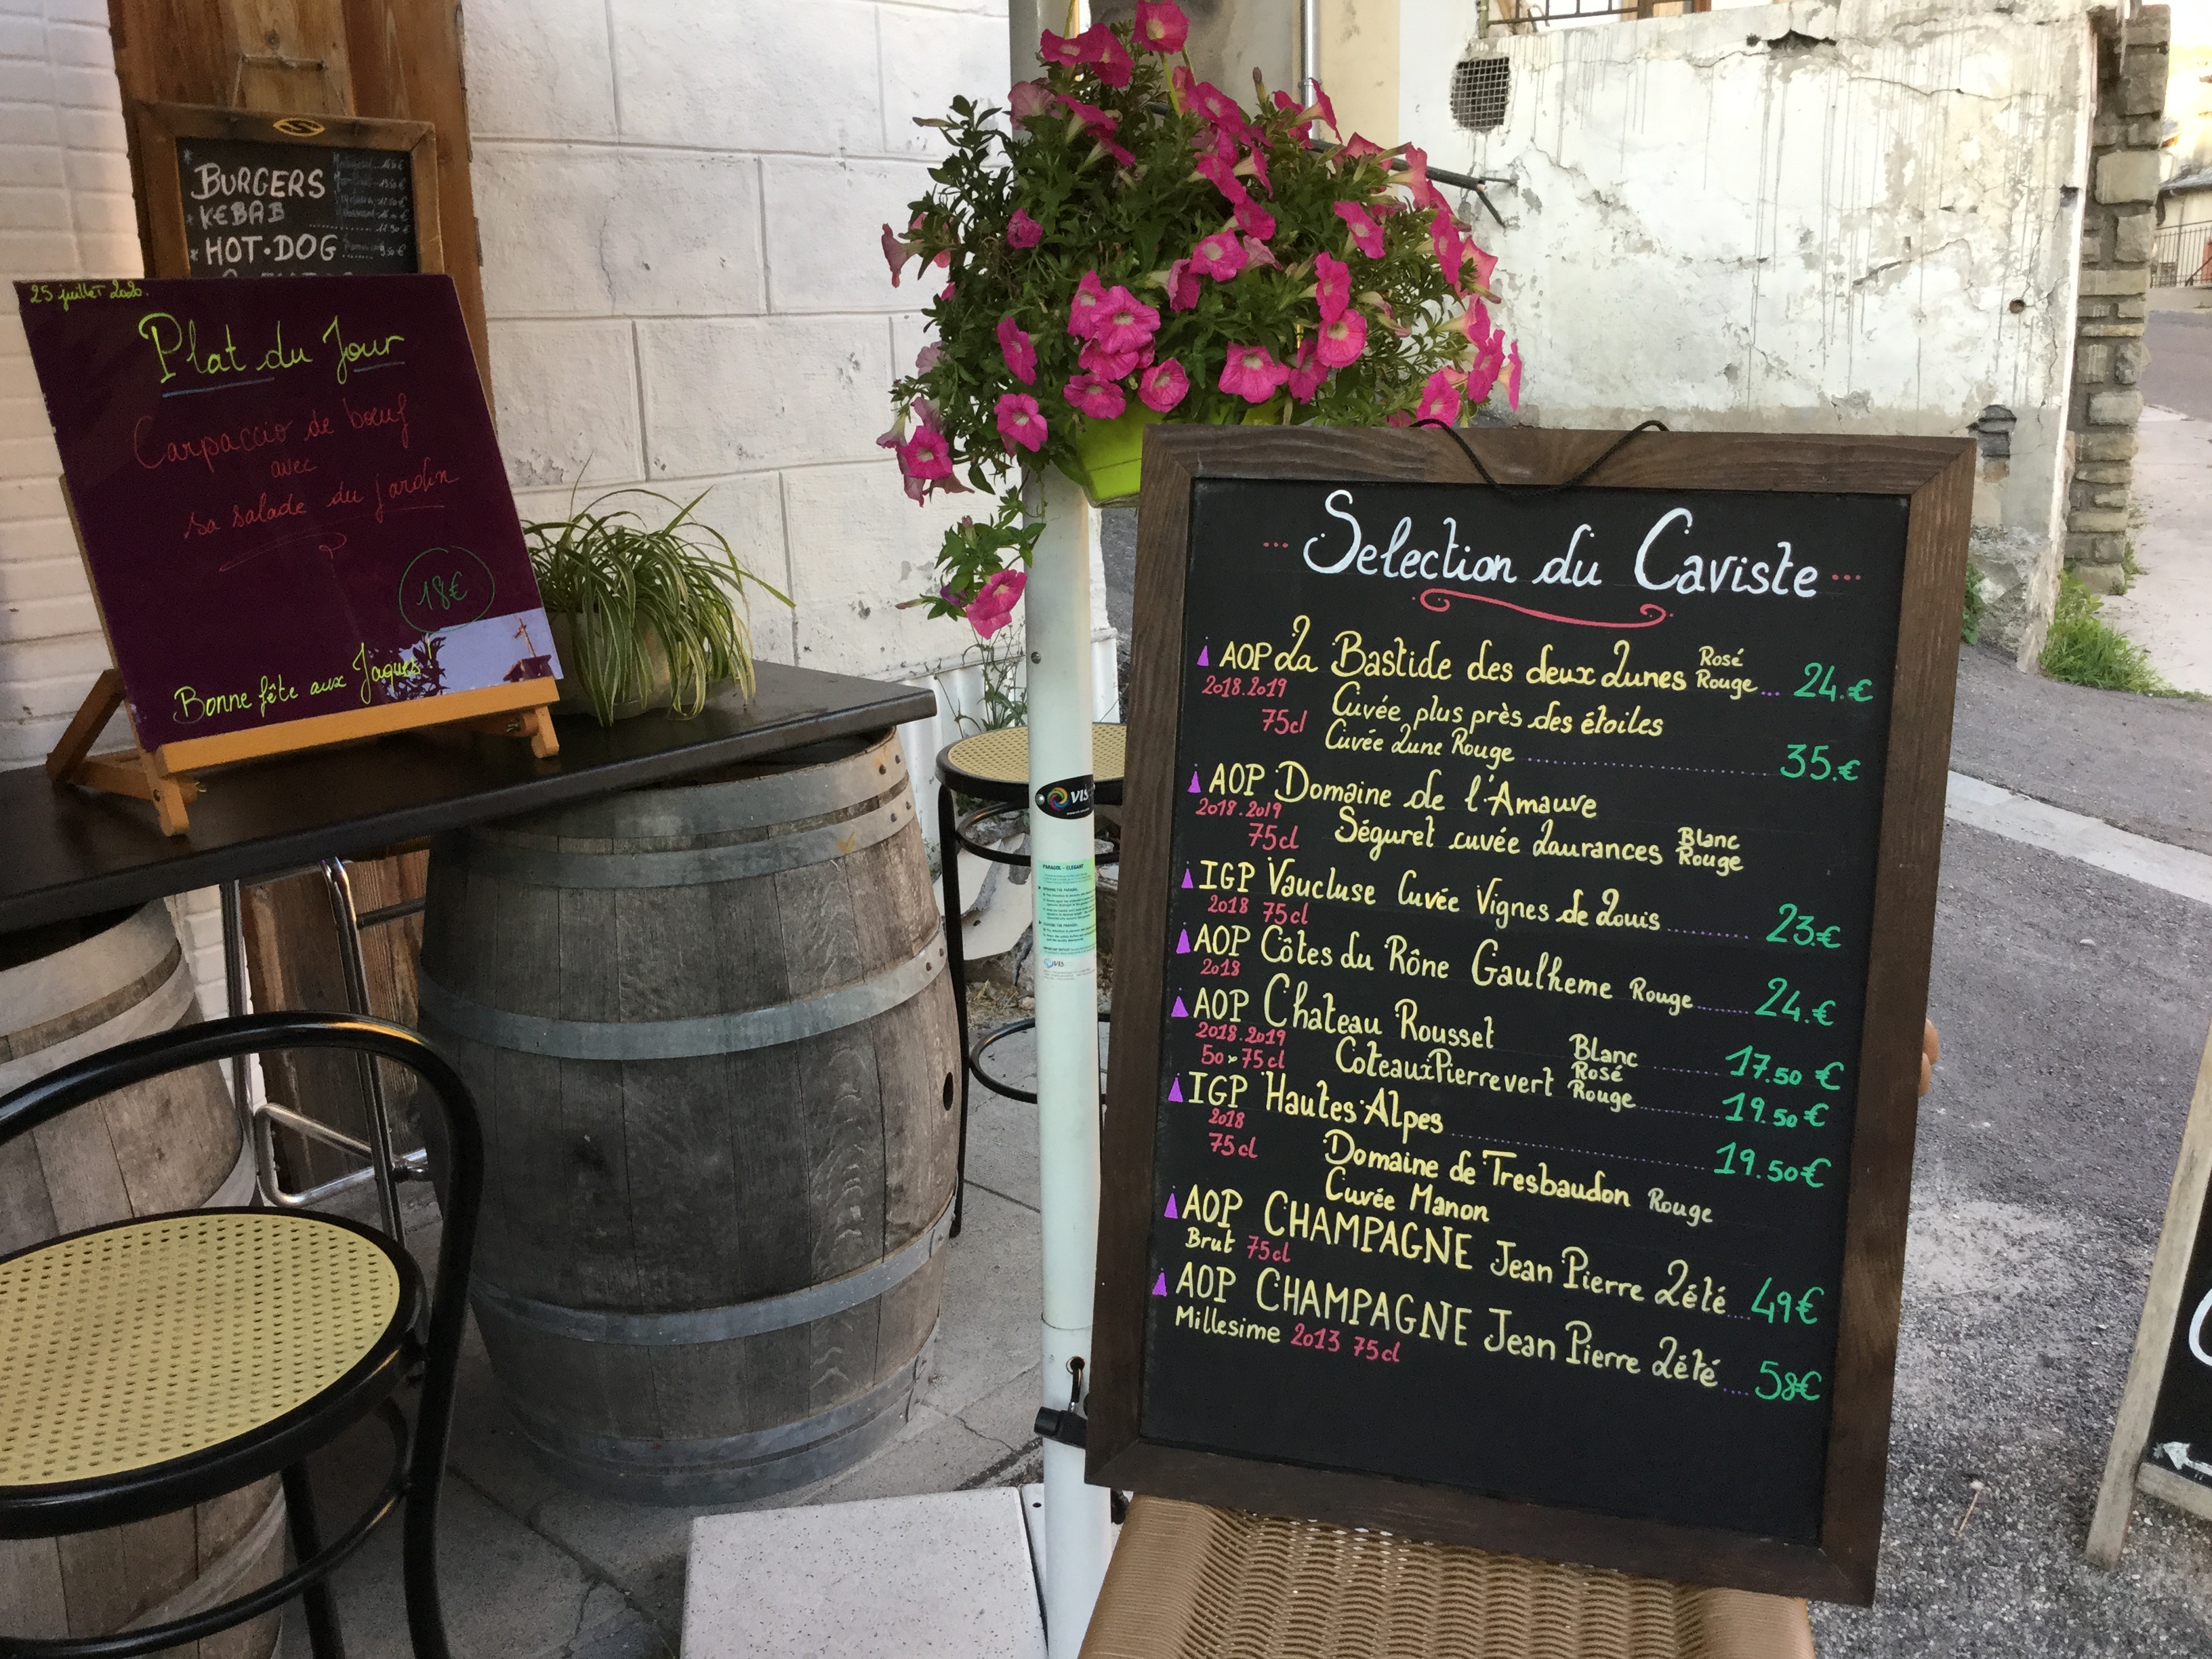 * BURGERS
* KEBAB
11.90 €
* HOT.DOG ...... 9.50 €
25 juillet 2020.
Plat du Jour
Carpaccio de bœuf
avec
sa salade du jardin
18€
Bonne fête aux Jaques!
VIS
... Selection du Caviste ...
AOP La Bastide des deux Lunes Rosé Rouge... 24.€
2018.2019
75cl Cuvée plus près des étoiles
Cuvée Lune Rouge .......... 35.€
AOP Domaine de l'Amauve
2018.2019
75cl Séguret cuvée Laurances Blanc Rouge
IGP Vaucluse Cuvée Vignes de Louis ........ 23.€
2018 75cl
AOP Côtes du Rône Gaulheme Rouge ...... 24.€
2018
AOP Chateau Rousset Blanc ........ 17.50 €
2018.2019 Rosé
50 * 75cl Coteaux Pierrevert Rouge ........ 19.50 €
IGP Hautes Alpes ............ 19.50€
2018
75cl Domaine de Tresbaudon Rouge
Cuvée Manon
AOP CHAMPAGNE Jean Pierre Lété ... 49€
Brut 75cl
AOP CHAMPAGNE Jean Pierre Lété .... 58€
Millesime 2013 75cl